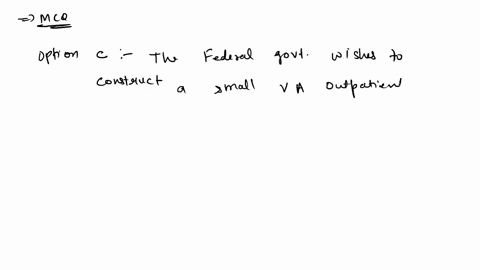 => MCQ
Option C :- The Federal govt. wishes to
construct a small VA Outpatien